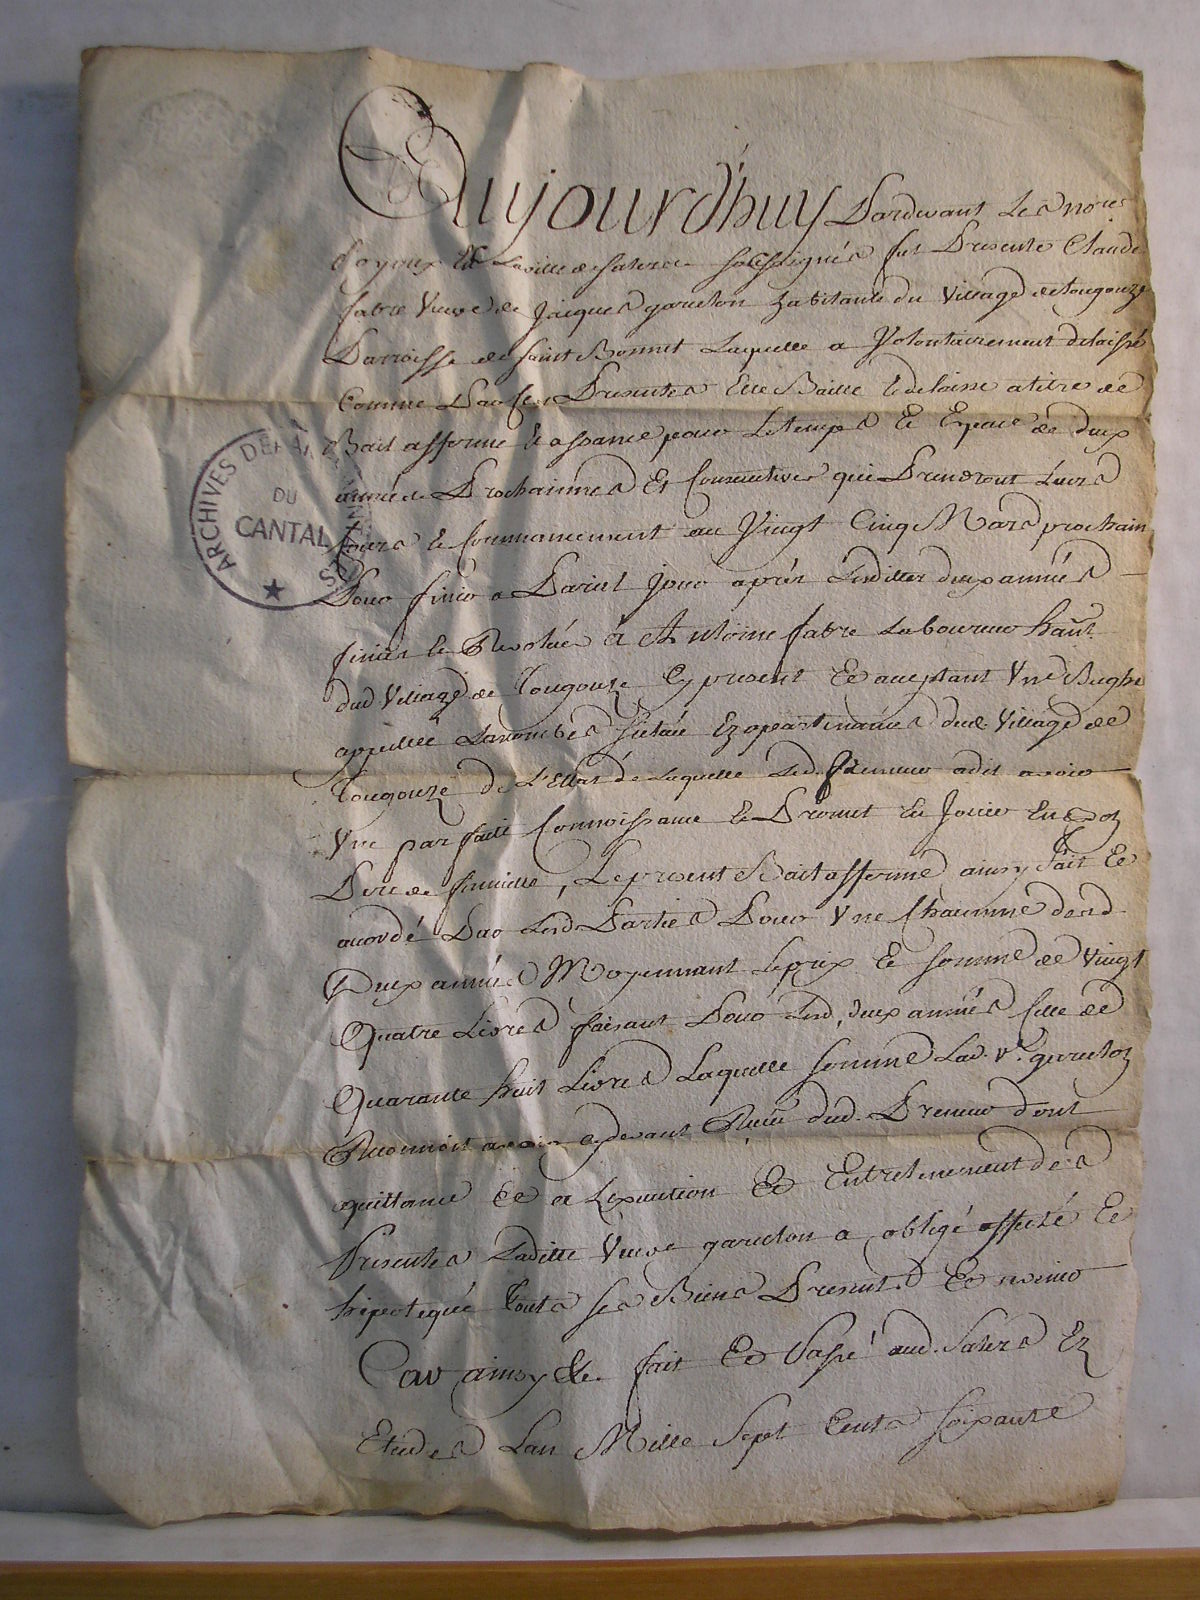 Aujourd'huy Pardevant Les no.res
Royaux En La ville de salers soussignés fut Presente Claude
fabre Veuve de Jacques garuchon habitante du Village de tougouze
Parroisse de saint Bonnet Laquelle a Volontairement delaissé
Comme Par Ces Presentes Elle Baille & delaisse a titre de
Bail afferme & assance pour Le temps Et Espace de deux
années Prochaines Et Consecutives qui Prendront Leurs
Cours & Commancement au Vingt Cinq Mars prochain
Pour finir a Pariel jour aprés Lesdittes deux années
finies & Revolüe á Antoine fabre Laboureur habt.
dud Village de Tougouze Cy present Et acceptant Une Bughe
appellée Lascombes sietüé Ez apartenances dud. Village de
Tougouze de L'Estat de Laquelle Led. Preneur a dit avoir
Une parfaite Connoissance & Promet En Jouir En Bon
Pere de famille, Le present Bail afferme ainsy fait Et
acordé Par Lesd. Parties Pour Une Chacune desd.
Deux années Moyennant Le prix Et somme de Vingt
Quatre Livres faisant Pour Lesd. deux années Celle de
Quarante huit Livres Laquelle somme Lad. Ve. garuchon
Reconnoit avoir cy devant Reçüe dud. Preneur dont
quittance Et a L'execution Et Entretenement des
Presentes Laditte Veuve garuchon a obligé affecté Et
hipotequé Touts ses Biens Presents Et avenir
Car ainsy Est fait Et Passé aud. Salers Ez
Etudes Lan Mille Sept Cents soixante
ARCHIVES DU CANTAL